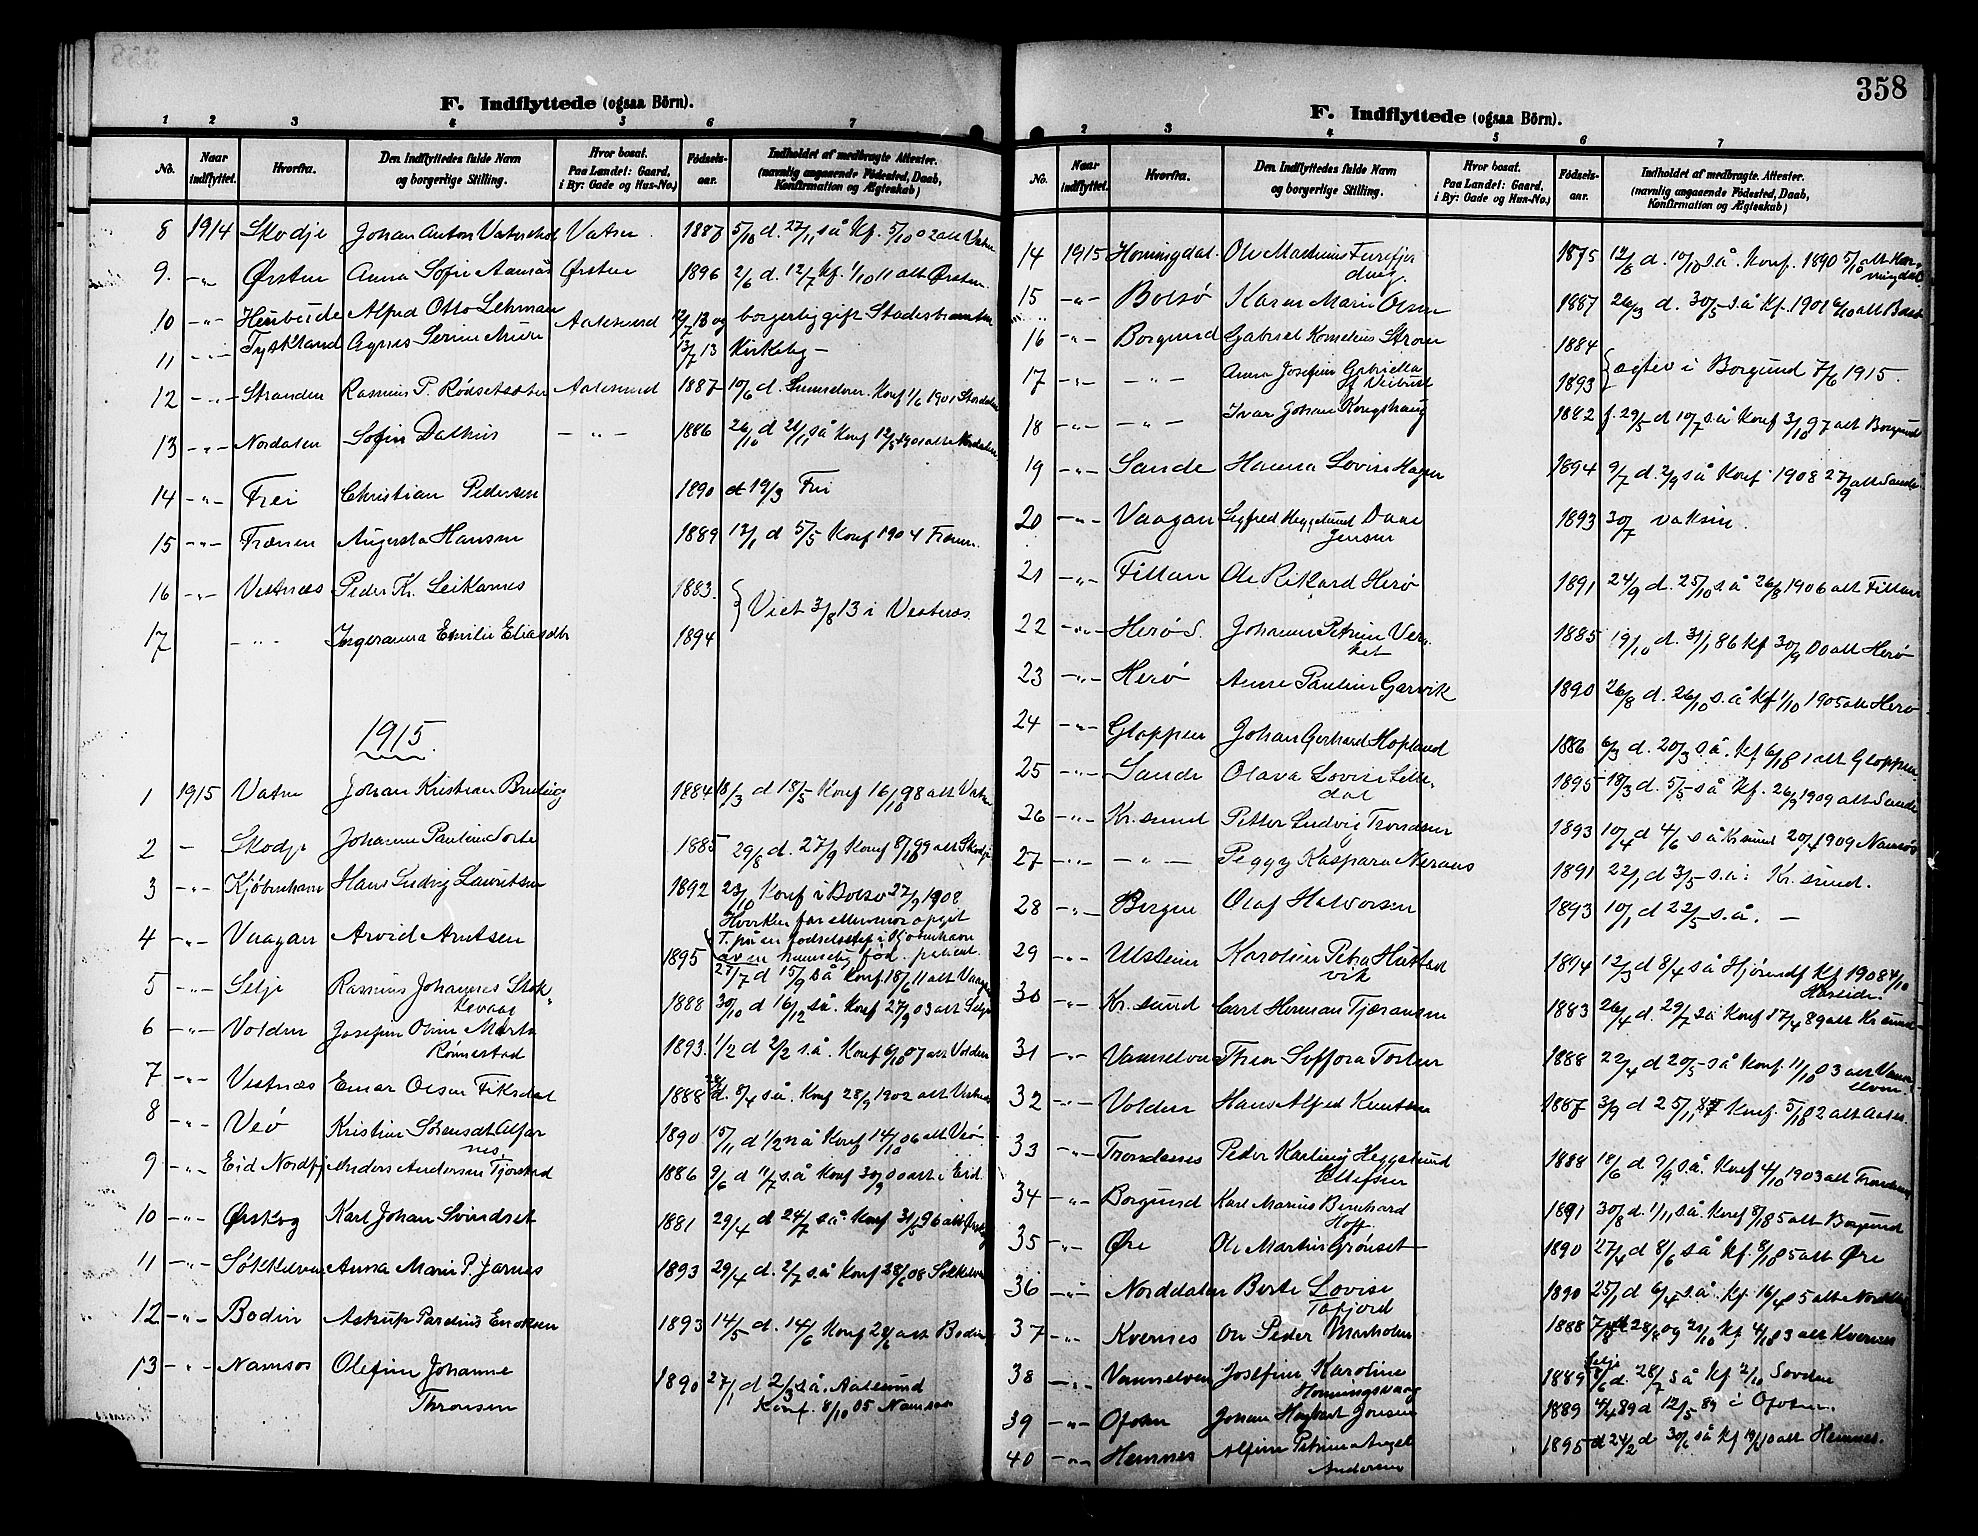 358
F. Indflyttede (ogsaa Börn).
1 2 3 4 5 6 7
No. Naar indflyttet. Hvorfra. Den Indflyttedes fulde Navn og borgerlige Stilling. Hvor bosat. Paa Landet: Gaard, i By: Gade og Hus-No.) Födsels-aar. Indholdet af medbragte Attester. (navnlig angaaende Födested, Daab, Konfirmation og Ægteskab)
8 1914 Skodje Johan Anton Vatnehol Vatne 1887 5/10 d. 27/11 så Kf. 5/10 02 alt Vatne
9. -"- Ørsten Anna Sofie Aamås Ørsten 1896 2/6 d. 12/7 kf. 1/10 11 alt Ørsten
10 -"- Alfred Otto Lehman Aalesund 12/7 13 og borgerlig gift
11 -"- Tyskland Agnes Serine 13/7 13 Kirkelig -
12 -"- Stranden Rasmus P. Rødsetsæter Aalesund 1887 10/6 d. Konf 1/6 1901 Stordalen
13 -"- Nordalen Sofie Dalhus -"- 1886 26/10 d 21/11 så Konf
14 -"- Frei Christian Pedersen 1890 d 19/3 Frei
15 -"- Frænen Augusta Hansen 1889 12/1 d 5/5 Konf 1904 Frænen
16 -"- Vestnæs Peder Kr. Leikarnes 1883.
17 -"- Ingeranna Emilie Eliasdtr 1894 } Viet 3/8 13 i Vestnæs
1915
1 1915 Vatne Johan Kristian 1884 18/3 d 18/5 Konf 16/10 98 alt Vatne
2 - Skodje Johanne Pauline 1885 29/8 d. 27/9 Konf 8/10 99 alt Skodje
3 -"- Kjøbenhavn Hans Ludvig Lauritsen 1892 23/10 Konf i Bolsø 27/9 1908
4 -"- Vaagan Arvid Arntsen 1895 27/7 d 15/9 så Konf 18/6 11 alt Vaagan
5 -"- Selje Rasmus Johannes 1888 30/10 d 16/12 så. Konf 27/9 03 alt Selje
6 -"- Volden Josefine Oline Marta Rønnestad 1893. 1/2 d 2/2 s.å. Konf 6/10 07 alt Volden
7 -"- Vestnæs Einar Olsen Fiksdal 1888 d. 8/4 så. Konf 28/9 1902 alt Vestnæs
8 -"- Veø Kristine Sørensdt Alfarnes 1890 15/11 d 1/2 n.å Konf 14/10 06 alt Veø.
9 -"- Eid Nordfj Anders Andersen 1886 9/6 d 11/7 s.å Konf 30/9 00 alt i Eid.
10 -"- Ørskog Karl Johan Svindset 1881 29/4 d 24/7 så Konf 31/5 96 alt Ørskog
11 -"- Søkkelven Anna Marie P. Jarnes 1893 29/4 d. 2/7 s.å Konf 28/6 08 Søkkelven
12 -"- Bodin Astrup Parelius Enoksen 1893 14/5 d. 14/6 Konf alt Bodin
13 -"- Namsos Olefine Johanne Thronsen 1890 27/1 d 2/3 s.å. Aalesund Konf. 8/10 05 Namsos
F. Indflyttede (ogsaa Börn).
2 3 4 5 6 7
No. Naar indflyttet. Hvorfra. Den Indflyttedes fulde Navn og borgerlige Stilling. Hvor bosat. Paa Landet: Gaard, i By: Gade og Hus-No.) Födsels-aar. Indholdet af medbragte Attester. (navnlig angaaende Födested, Daab, Konfirmation og Ægteskab)
14 1915 Horningdal Ole Mathinus 1875 12/8 d. 10/10 s.å. Konf. 1890 5/10 alt Horningdal
15 -"- Bolsø Karen Marie Olsen 1887 26/3 d. 30/5 s.å Kf. 1901 alt Bolsø
16 -"- Borgund Gabriel Kornelius Strøm 1884
17 -"- -"- Anna Josefine Gabriella 1893 } ægtev i Borgund 7/6 1915.
18 -"- -"- Ivar Johan Kongshaug 1882 f. 29/5 d 10/7 s.å Konf 3/10 97 alt Borgund
19 -"- Sande Hanna Lovise Hagen 1894 9/7 d. 2/9 så Konf. 1908 27/9 alt Sande
20 -"- Vaagan Sigfred Heggelund Daae Jensen 1893 30/7 vaksin.
21 -"- Fillan Ole Rikard Herø 1891 24/9 d. 25/10 s å 26/8 1906 alt Fillan
22 -"- Herø S. Johanne Petrine 1885 19/10 d. 31/1 86 kf 30/9 00 alt Herø
23 -"- Herø Anne Pauline Garvik 1890 26/8 d. 26/10 s.å Kf 1/10 1905 alt Herø
24 -"- Gloppen Johan Gerhard Hopland 1886 6/3 d. 20/3 s.å. Kf 6/10 01 alt Gloppen
25 -"- Sande Olava Lovise Lilledal 1895 18/3 d. 5/5 så Kf. 26/9 1909 alt Sande
26 -"- Kr.sund Petter Ludvig Trondsen 1893 10/4 d 4/6 s å Kr.sund 20/4 1909 Namsos
27 -"- -"- Peggy Kaspara 1891 22/1 d 3/5 s.å: Kr.sund.
28 -"- Bergen Olaf Halvorsen 1893 10/1 d 22/5 s.å. -
29 -"- Ulstein Karoline Petra 1894 12/3 d 8/4 så Hjørundf Kf 1908 4/10
30 -"- Kr.sund Carl Herman Tjæransen 1883 26/4 d. 29/7 så Konf 17/4 89 alt Kr.sund
31 -"- Vannelven Thea Soffora 1888 22/4 d 20/5 så Konf. 11/10 03 alt Vannelven
32 -"- Volden Hans Alfred Knutsen 1887 3/9 d 25/11 87 Konf. 5/10 02 alt Aales.
33 -"- Trondenes Peder Karling Heggelund Ellefsen 1888 18/6 d 9/9 så. Konf 4/10 1903 alt Trondenes
34 -"- Borgund Karl Marius Bernhard Hoff. 1891 30/8 d. 1/11 så. Konf 8/10 5 alt Borgund
35 -"- Øre Ole Martin Grønset 1890 27/4 d 8/6 så Kf. 8/10 05 alt Øre
36 -"- Norddalen Berte Lovise Tafjord 1890 25/1 d 6/4 s.å. Kf 16/4 05 alt Norddal
37 -"- Kvernes Ole Peder 1888 28/8 og 21/10 Kf 4/10 03 alt Kvernes
38 -"- Vannelven Josefine Karoline Honningsvaag 1889 Selje 8/6 d. 28/7 så Kf 2/10
39 -"- Ofoten Johan Hagbart Jensen 1889 4/4 89 d 12/5 89 i Ofoten.
40 -"- Hemnes Alfine Petrine Angel Andersen 1895 d 24/2 d 30/6 så Kf alt Hemnes.